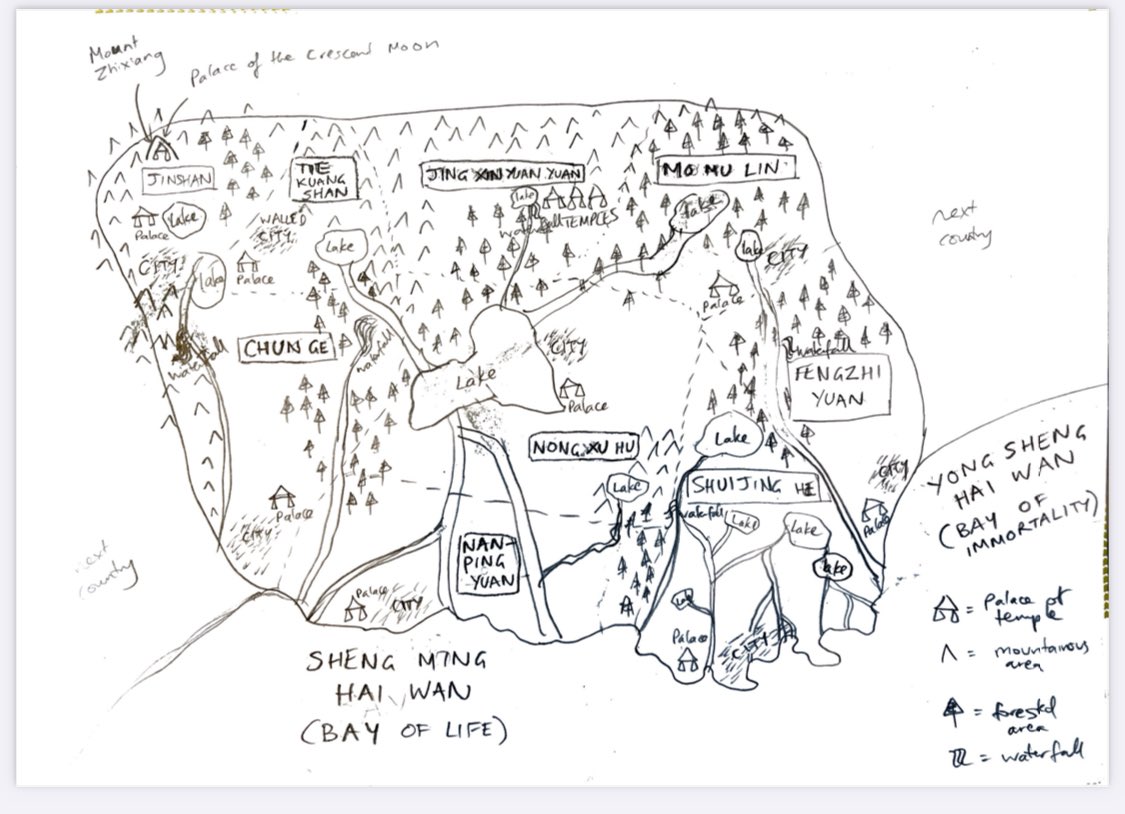 Mount
Zhixiang
Palace of the Crescent Moon
JINSHAN
TIE
KUANG
SHAN
JING XIN YUAN YUAN
MO MU LIN
Palace
Lake
WALLED
CITY
Lake
Lake
waterfall
TEMPLES
Lake
Lake
CITY
next
country
CITY
Lake
Palace
Palace
waterfall
CHUN GE
waterfall
Lake
CITY
Palace
waterfall
FENGZHI
YUAN
NONG XU HU
Lake
Lake
SHUIJING HE
CITY
Palace
YONG SHENG
HAI WAN
(BAY OF
IMMORTALITY)
Palace
CITY
waterfall
Lake
Lake
Lake
next
country
NAN-
PING
YUAN
Palace
CITY
Lake
Palace
CITY
SHENG MING
HAI WAN
(BAY OF LIFE)
= Palace or
temple
= mountainous
area
= forested
area
= waterfall